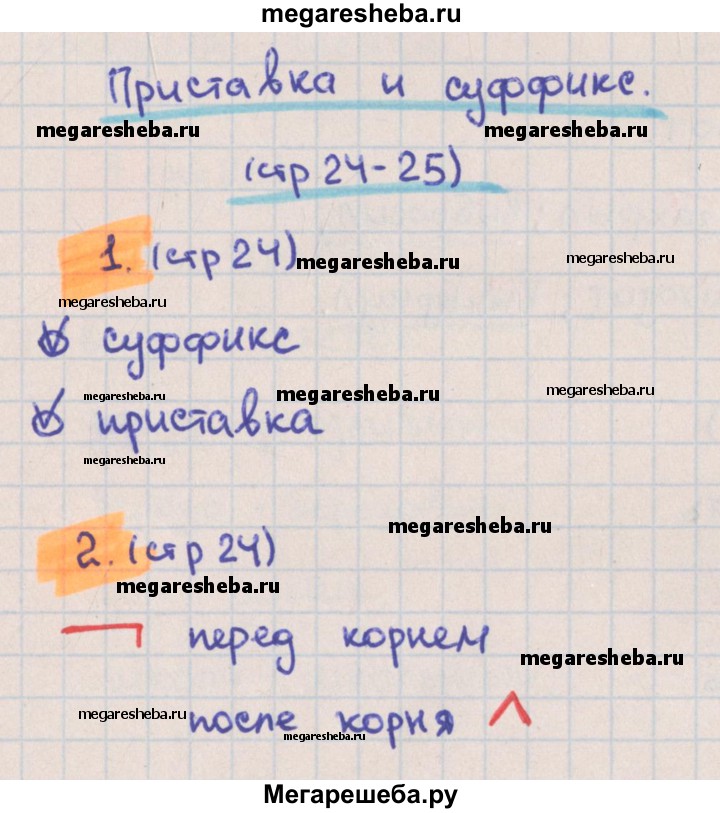 megaresheba.ru
Приставка и суффикс.
megaresheba.ru megaresheba.ru
(стр 24-25)
1. (стр 24) megaresheba.ru megaresheba.ru
megaresheba.ru
суффикс
megaresheba.ru megaresheba.ru megaresheba.ru
приставка
megaresheba.ru
megaresheba.ru
2. (стр 24)
megaresheba.ru
перед корнем
megaresheba.ru
megaresheba.ru после корня
megaresheba.ru
Мегарешеба.ру